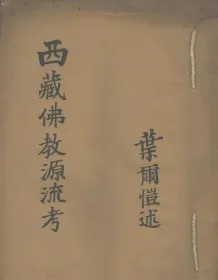 西藏佛教源流考
葉爾愷述